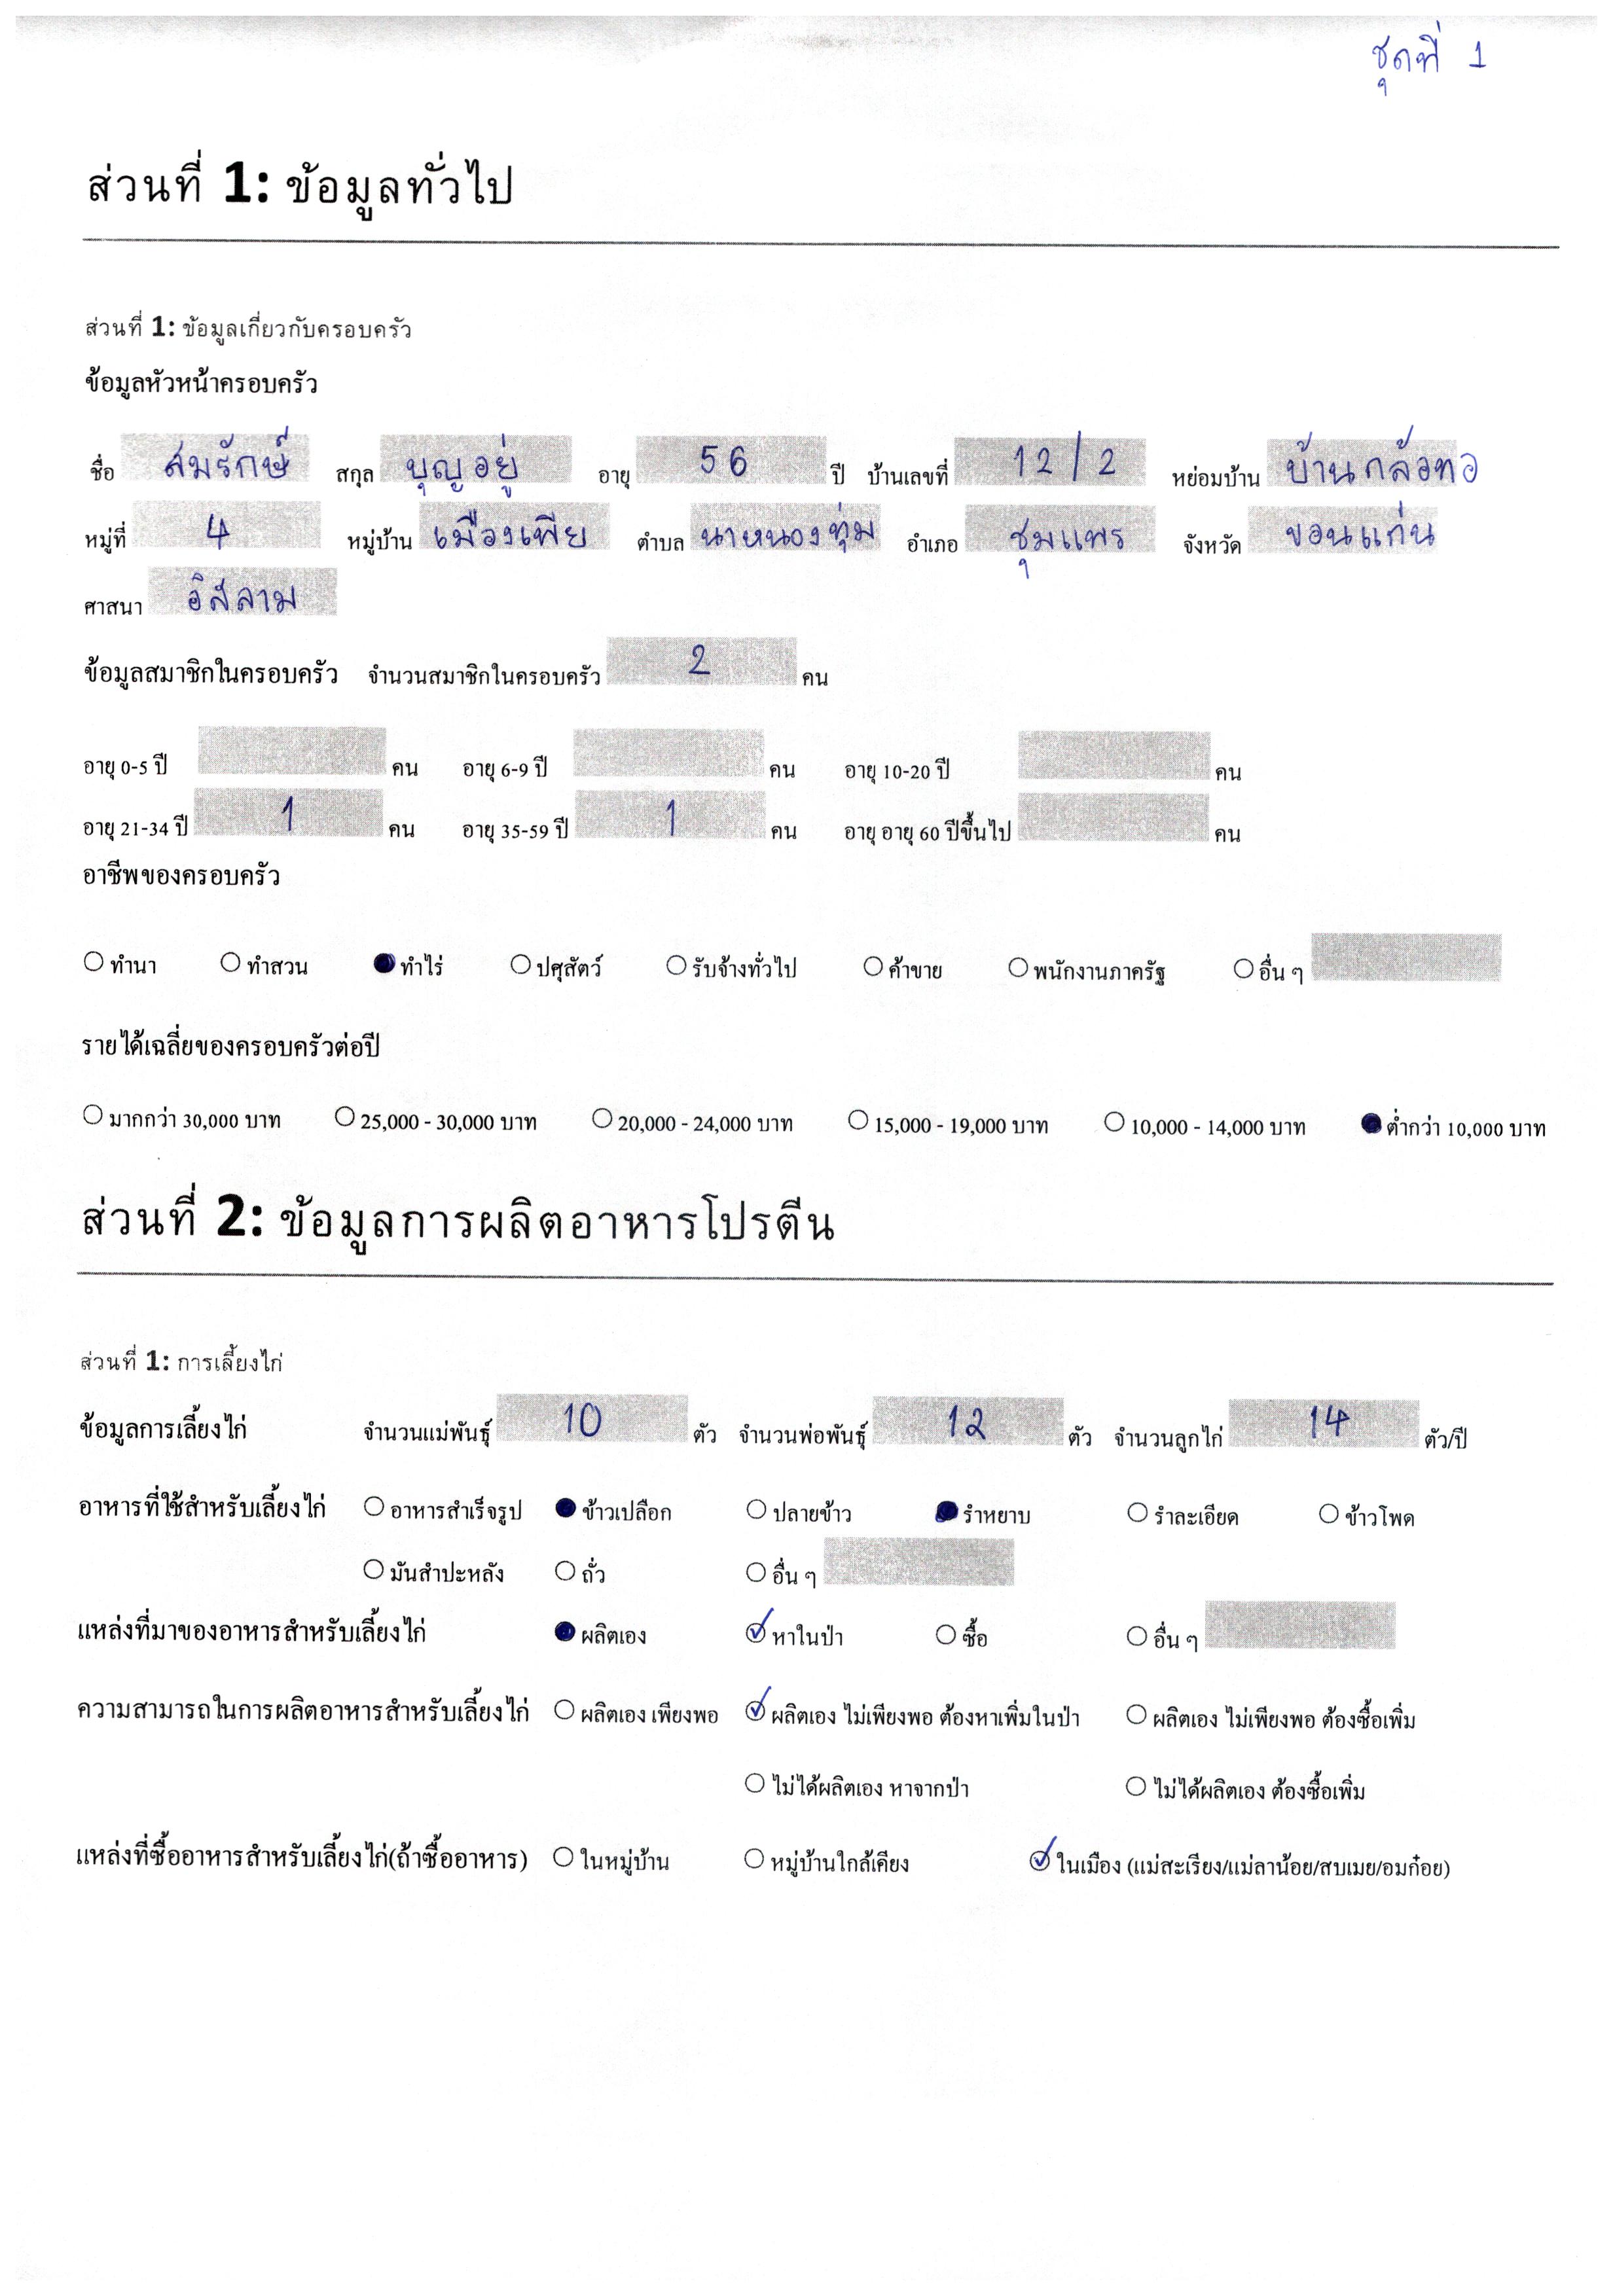 ชุดที่ 1
ส่วนที่ 1: ข้อมูลทั่วไป
ส่วนที่ 1: ข้อมูลเกี่ยวกับครอบครัว
ข้อมูลหัวหน้าครอบครัว
ชื่อ สมรักษ์ สกุล บุญอยู่ อายุ 56 ปี บ้านเลขที่ 12/2 หย่อมบ้าน บ้านกล้อทอ
หมู่ที่ 4 หมู่บ้าน เมืองเพีย ตำบล นาหนองทุ่ม อำเภอ ชุมแพร จังหวัด ขอนแก่น
ศาสนา อิสลาม
ข้อมูลสมาชิกในครอบครัว จำนวนสมาชิกในครอบครัว 2 คน
อายุ 0-5 ปี คน อายุ 6-9 ปี คน อายุ 10-20 ปี คน
อายุ 21-34 ปี 1 คน อายุ 35-59 ปี 1 คน อายุ อายุ 60 ปีขึ้นไป คน
อาชีพของครอบครัว
ทำนา ทำสวน ทำไร่ ปศุสัตว์ รับจ้างทั่วไป ค้าขาย พนักงานภาครัฐ อื่น ๆ
รายได้เฉลี่ยของครอบครัวต่อปี
มากกว่า 30,000 บาท 25,000 - 30,000 บาท 20,000 - 24,000 บาท 15,000 - 19,000 บาท 10,000 - 14,000 บาท ต่ำกว่า 10,000 บาท
ส่วนที่ 2: ข้อมูลการผลิตอาหารโปรตีน
ส่วนที่ 1: การเลี้ยงไก่
ข้อมูลการเลี้ยงไก่ จำนวนแม่พันธุ์ 10 ตัว จำนวนพ่อพันธุ์ 12 ตัว จำนวนลูกไก่ 14 ตัว/ปี
อาหารที่ใช้สำหรับเลี้ยงไก่ อาหารสำเร็จรูป ข้าวเปลือก ปลายข้าว รำหยาบ รำละเอียด ข้าวโพด
มันสำปะหลัง ถั่ว อื่น ๆ
แหล่งที่มาของอาหารสำหรับเลี้ยงไก่ ผลิตเอง หาในป่า ซื้อ อื่น ๆ
ความสามารถในการผลิตอาหารสำหรับเลี้ยงไก่ ผลิตเอง เพียงพอ ผลิตเอง ไม่เพียงพอ ต้องหาเพิ่มในป่า ผลิตเอง ไม่เพียงพอ ต้องซื้อเพิ่ม
ไม่ได้ผลิตเอง หาจากป่า ไม่ได้ผลิตเอง ต้องซื้อเพิ่ม
แหล่งที่ซื้ออาหารสำหรับเลี้ยงไก่(ถ้าซื้ออาหาร) ในหมู่บ้าน หมู่บ้านใกล้เคียง ในเมือง (แม่สะเรียง/แม่ลาน้อย/สบเมย/อมก๋อย)